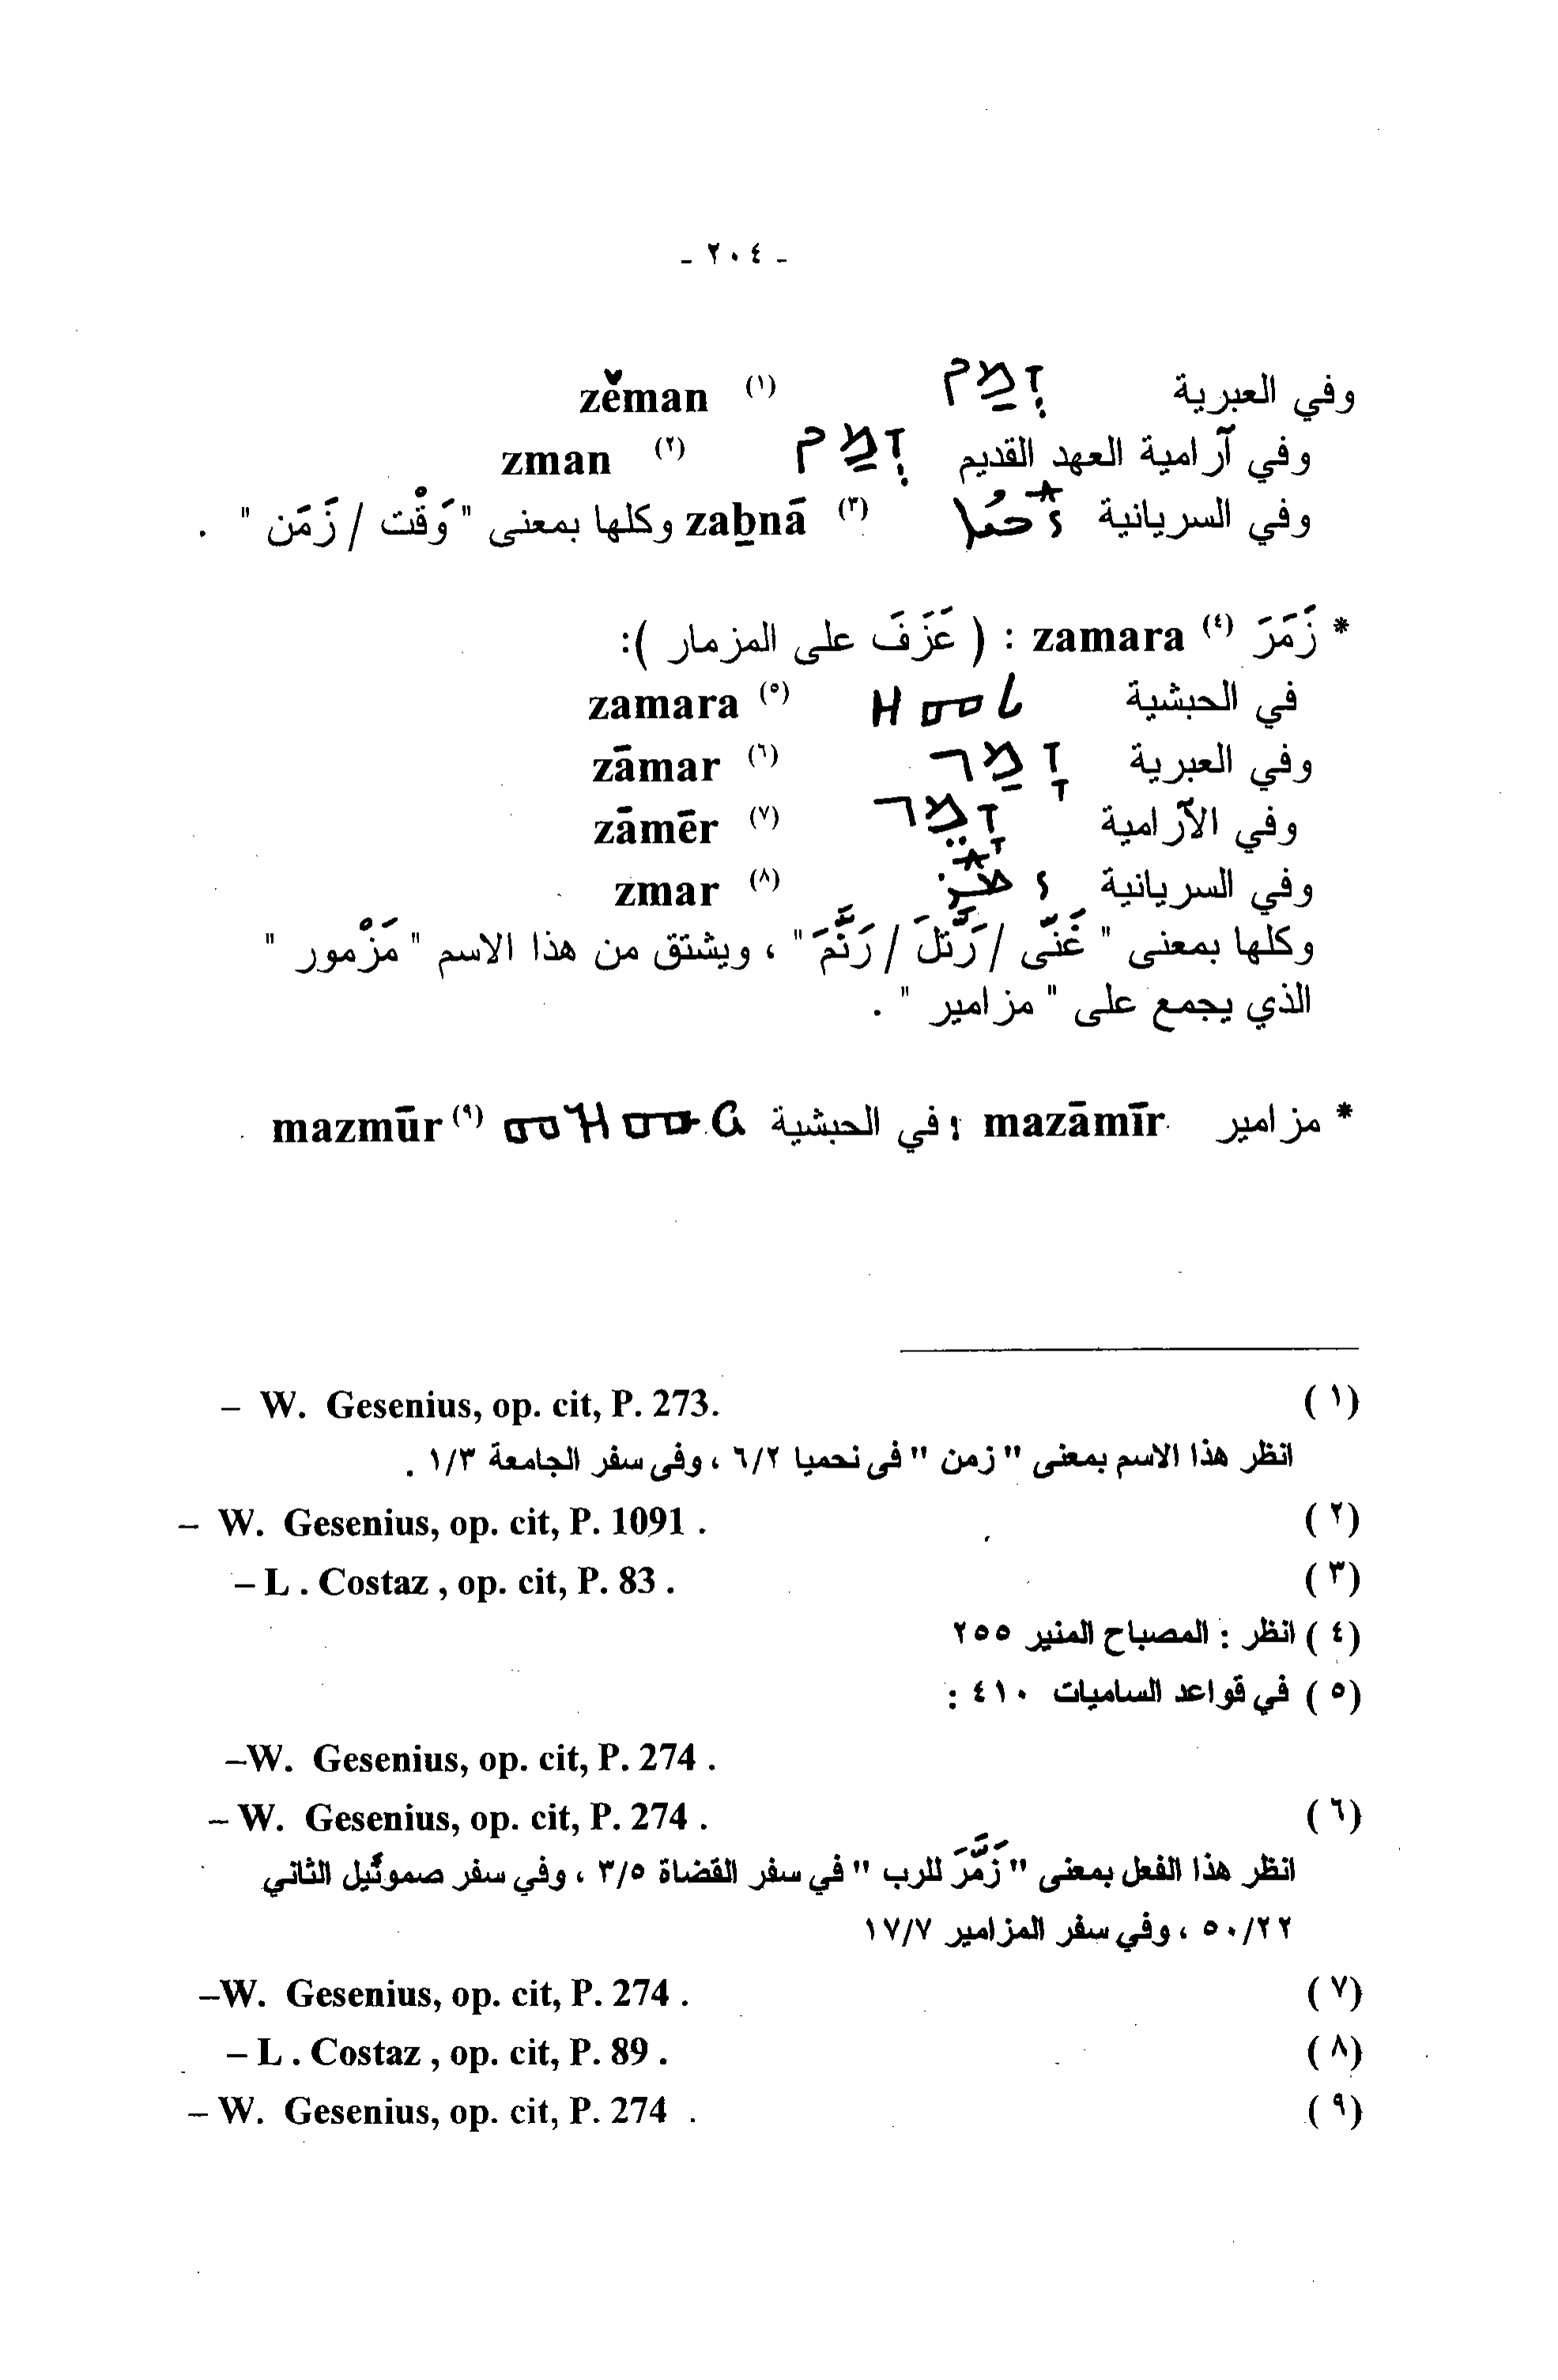 - ٢٠٤ -
وفي العبرية זְמַן (١) zĕman
وفي آرامية العهد القديم זְמַן (٢) zman
وفي السريانية (٣) zaḇnā وكلها بمعنى " وَقْت / زَمَن " .
* زَمَرَ (٤) zamara : ( عَزَفَ على المزمار ):
في الحبشية ዘመረ (٥) zamara
وفي العبرية זָמַר (٦) zāmar
وفي الآرامية זָמֵר (٧) zāmēr
وفي السريانية (٨) zmar
وكلها بمعنى " غَنَّى / رَتَّلَ / رَنَّمَ " ، ويشتق من هذا الاسم " مَزْمور "
الذي يجمع على " مزامير " .
* مزامير mazāmīr ؛ في الحبشية መዝሙር (٩) mazmūr
(١) – W. Gesenius, op. cit, P. 273.
انظر هذا الاسم بمعنى " زمن " فى نحميا ٦/٢ ، وفى سفر الجامعة ١/٣ .
(٢) – W. Gesenius, op. cit, P. 1091 .
(٣) – L . Costaz , op. cit, P. 83 .
(٤) انظر : المصباح المنير ٢٥٥
(٥) في قواعد الساميات ٤١٠ :
–W. Gesenius, op. cit, P. 274 .
(٦) – W. Gesenius, op. cit, P. 274 .
انظر هذا الفعل بمعنى " زَمَّرَ للرب " في سفر القضاة ٣/٥ ، وفي سفر صموئيل الثاني
٥٠/٢٢ ، وفي سفر المزامير ١٧/٧
(٧) –W. Gesenius, op. cit, P. 274 .
(٨) – L . Costaz , op. cit, P. 89 .
(٩) – W. Gesenius, op. cit, P. 274 .